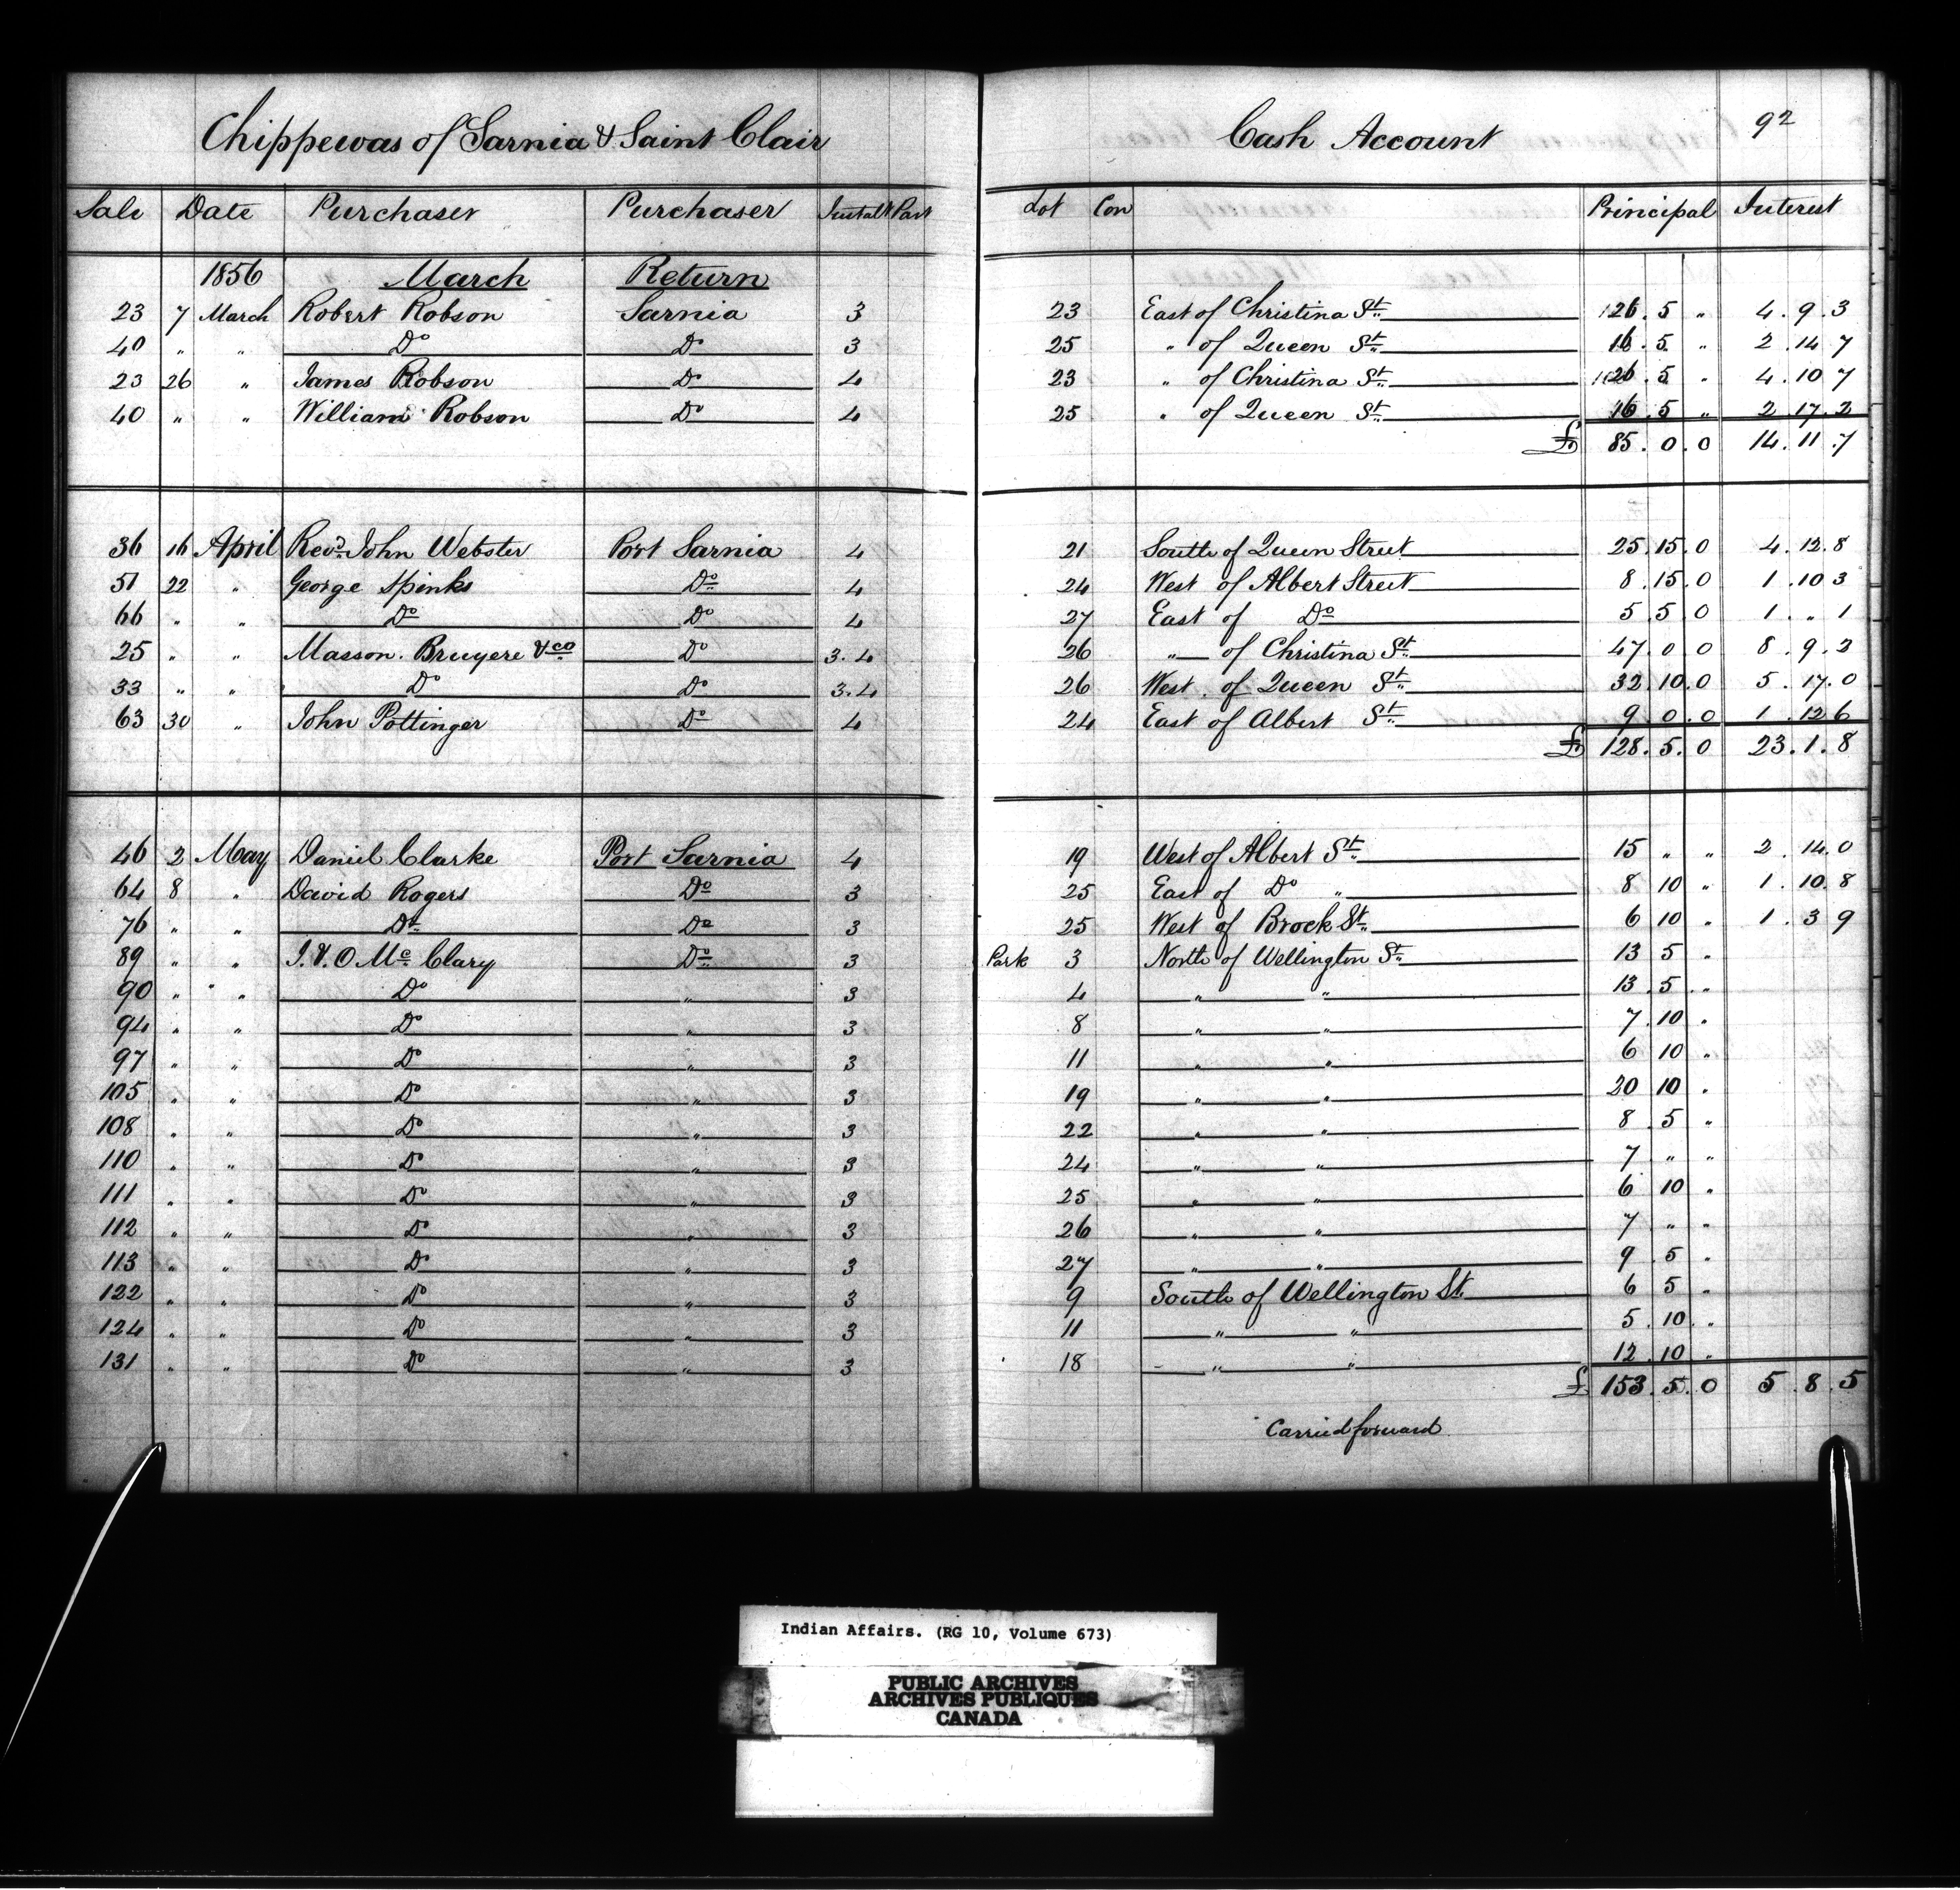 Chippewas of Sarnia & Saint Clair Cash Account 92
Sale Date Purchaser Purchaser Instalt Part Lot Con Principal Interest
1856 March Return
23 7 March Robert Robson Sarnia 3 23 East of Christina St. 26 . 5 " 4 . 9 . 3
40 " " Do Do 3 25 " of Queen St. 16 . 5 " 2 . 14 7
23 26 " James Robson Do 4 23 " of Christina St. 26 . 5 " 4 . 10 7
40 " " William Robson Do 4 25 " of Queen St. 16 . 5 " 2 . 17 . 2
£ 85 . 0 . 0 14 . 11 . 7
36 16 April Revd. John Webster Port Sarnia 4 21 South of Queen Street 25 . 15 . 0 4 . 12 . 8
51 22 " George Spinks Do 4 24 West of Albert Street 8 . 15 . 0 1 . 10 3
66 " " Do Do 4 27 East of Do 5 . 5 . 0 1 . " 1
25 " " Masson. Bruyere & co Do 3.4 26 " of Christina St. 47 . 0 . 0 8 . 9 . 2
33 " " Do Do 3.4 26 West of Queen St. 32 . 10 . 0 5 . 17 . 0
63 30 " John Pottinger Do 4 24 East of Albert St. 9 . 0 . 0 1 . 12 6
£ 128 . 5 . 0 23 . 1 . 8
46 2 May Daniel Clarke Port Sarnia 4 19 West of Albert St. 15 " " 2 . 14 . 0
64 8 " David Rogers Do 3 25 East of Do " 8 10 " 1 . 10 . 8
76 " " Do Do 3 25 West of Brock St. 6 10 " 1 . 3 9
89 " " J. & O Mc Clary Do 3 Park 3 North of Wellington St. 13 5 "
90 " " Do " 3 4 " " 13 . 5 "
94 " " Do " 3 8 " " 7 . 10 "
97 " " Do " 3 11 " " 6 10 "
105 " " Do " 3 19 " " 20 10 "
108 " " Do " 3 22 " " 8 . 5 "
110 " " Do " 3 24 " " 7 " "
111 " " Do " 3 25 " " 6 10 "
112 " " Do " 3 26 " " 7 " "
113 " " Do " 3 27 " " 9 . 5 "
122 " " Do " 3 9 South of Wellington St. 6 5 "
124 " " Do " 3 11 " " 5 . 10 "
131 " " Do " 3 18 " " 12 . 10 "
£ 153 . 5 . 0 5 . 8 . 5
Carried forward
Indian Affairs. (RG 10, Volume 673)
PUBLIC ARCHIVES
ARCHIVES PUBLIQUES
CANADA